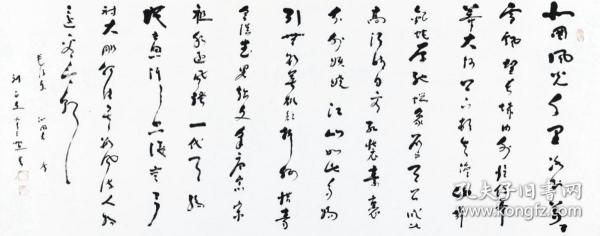 北国风光千里冰封万里
雪飘望长城内外惟余莽
莽大河上下顿失滔滔山舞
银蛇原驰蜡象欲与天公试比
高须晴日看红装素裹
分外妖娆江山如此多娇
引无数英雄竞折腰惜秦
皇汉武略输文采唐宗宋
祖稍逊风骚一代天骄
成吉思汗只识弯弓
射大雕俱往矣数风流人物
还看今朝
毛泽东 沁园春 雪
孔夫子旧书网
www.kongfz.com